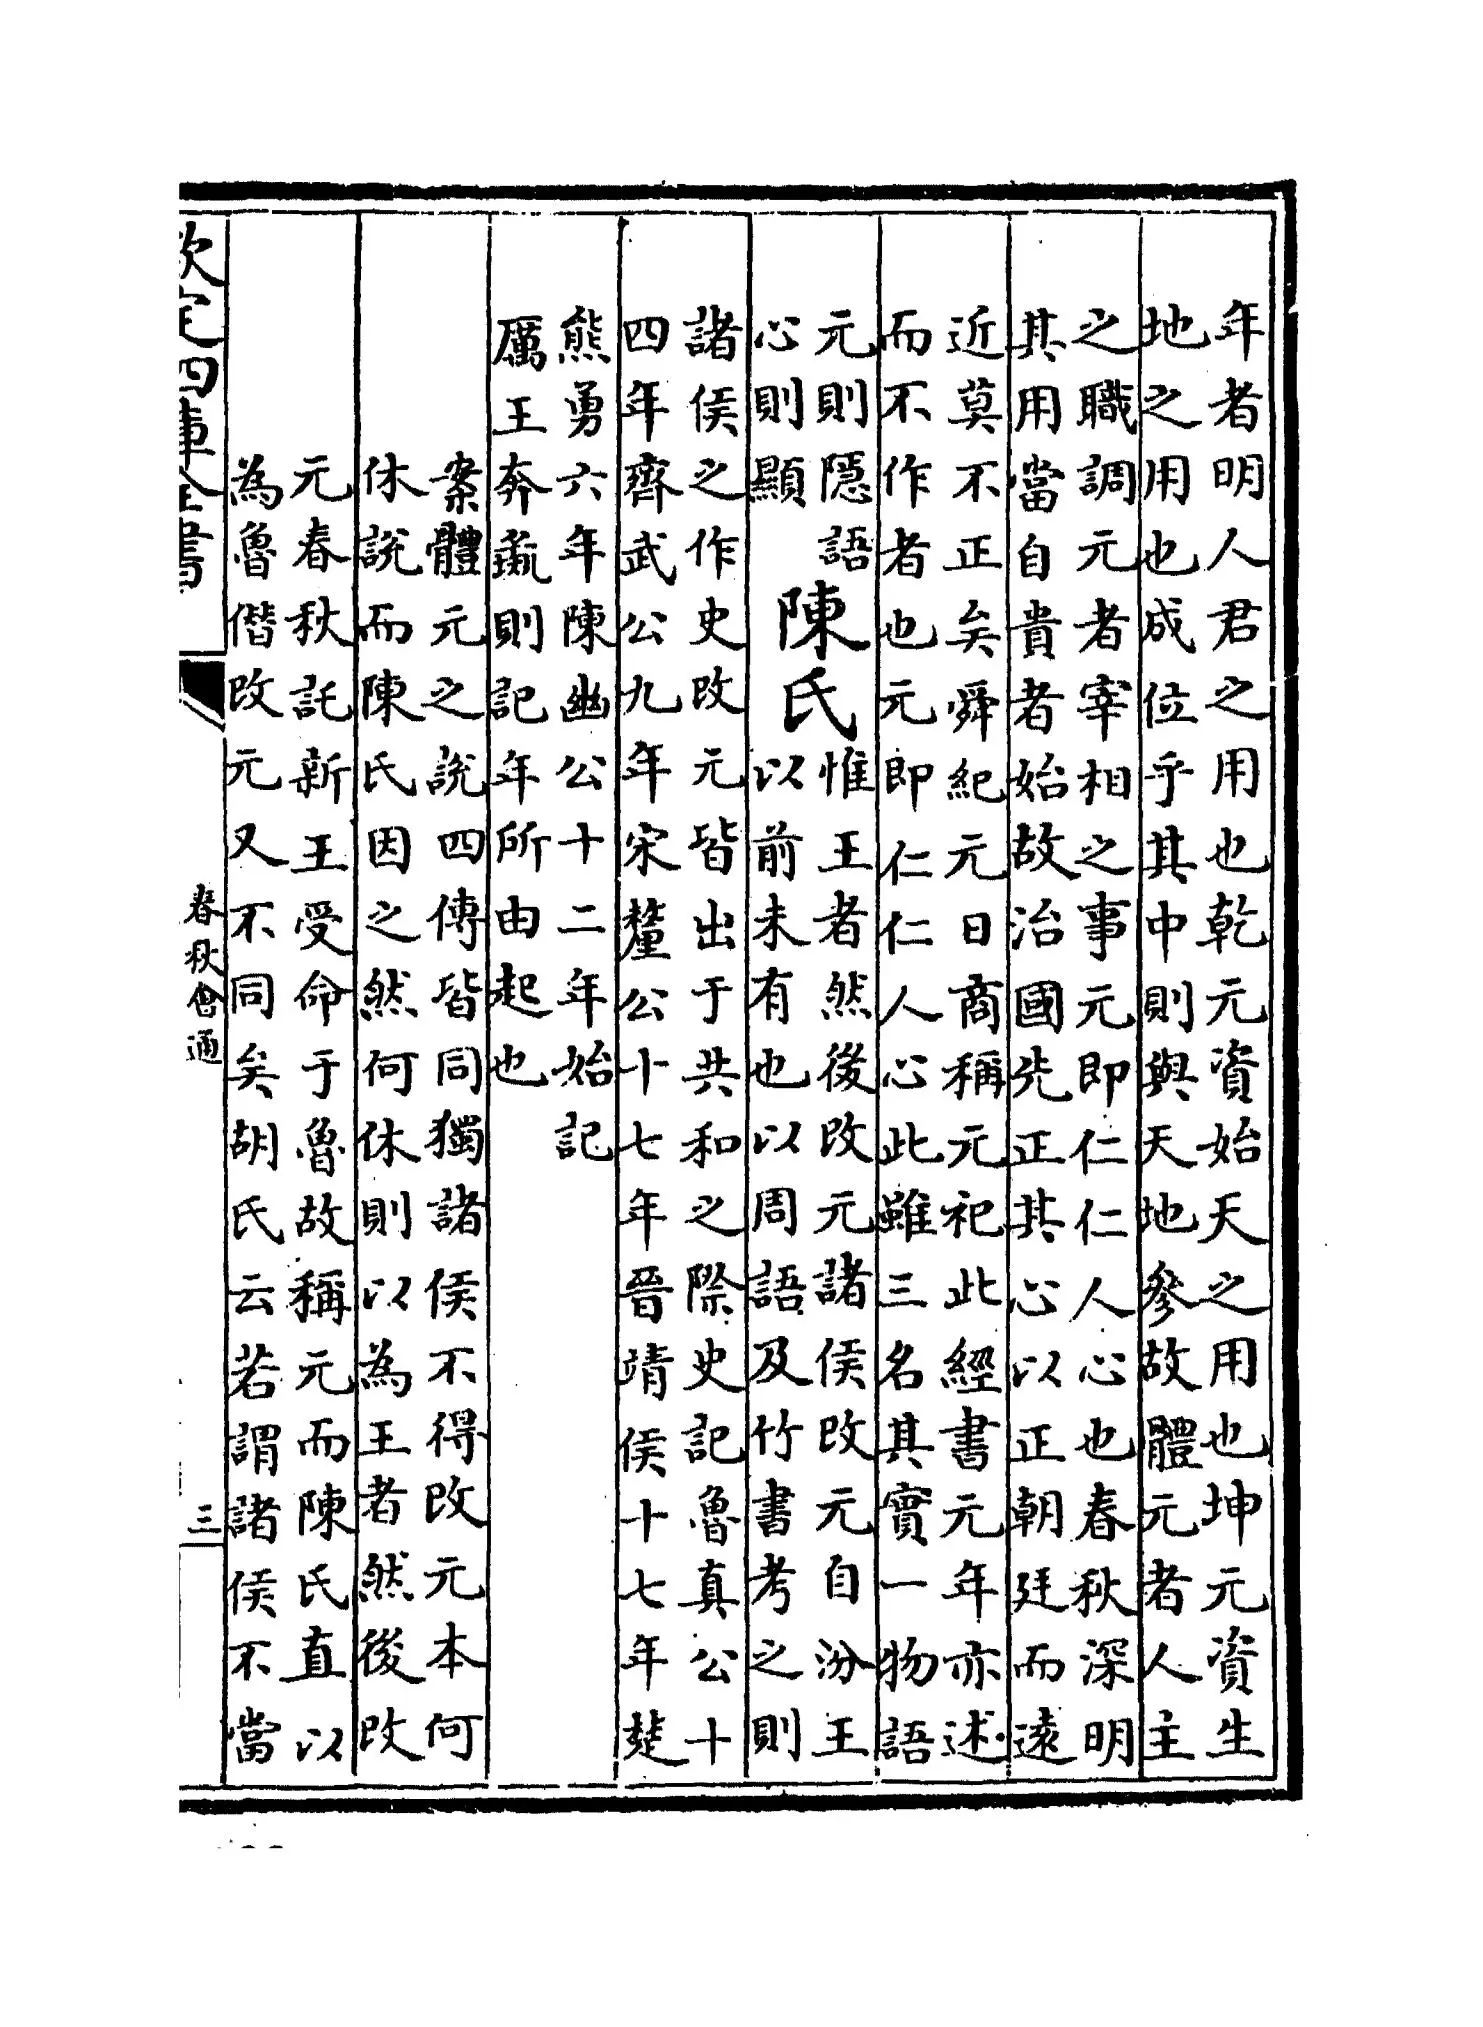 年者明人君之用也乾元資始天之用也坤元資生
地之用也成位乎其中則與天地參故體元者人主
之職調元者宰相之事元即仁仁人心也春秋深明
其用當自貴者始故治國先正其心以正朝廷而遠
近莫不正矣舜紀元日商稱元祀此經書元年亦述
而不作者也元即仁仁人心此雖三名其實一物語
元則隱語
心則顯
陳氏
惟王者然後改元諸侯改元自汾王
以前未有也以周語及竹書考之則
諸侯之作史改元皆出于共和之際史記魯真公十
四年齊武公九年宋釐公十七年晉靖侯十七年楚
熊勇六年陳幽公十二年始記
厲王奔彘則記年所由起也
案體元之說四傳皆同獨諸侯不得改元本何
休說而陳氏因之然何休則以為王者然後改
元春秋託新王受命于魯故稱元而陳氏直以
為魯僭改元又不同矣胡氏云若謂諸侯不當
欽定四庫全書
春秋會通
三